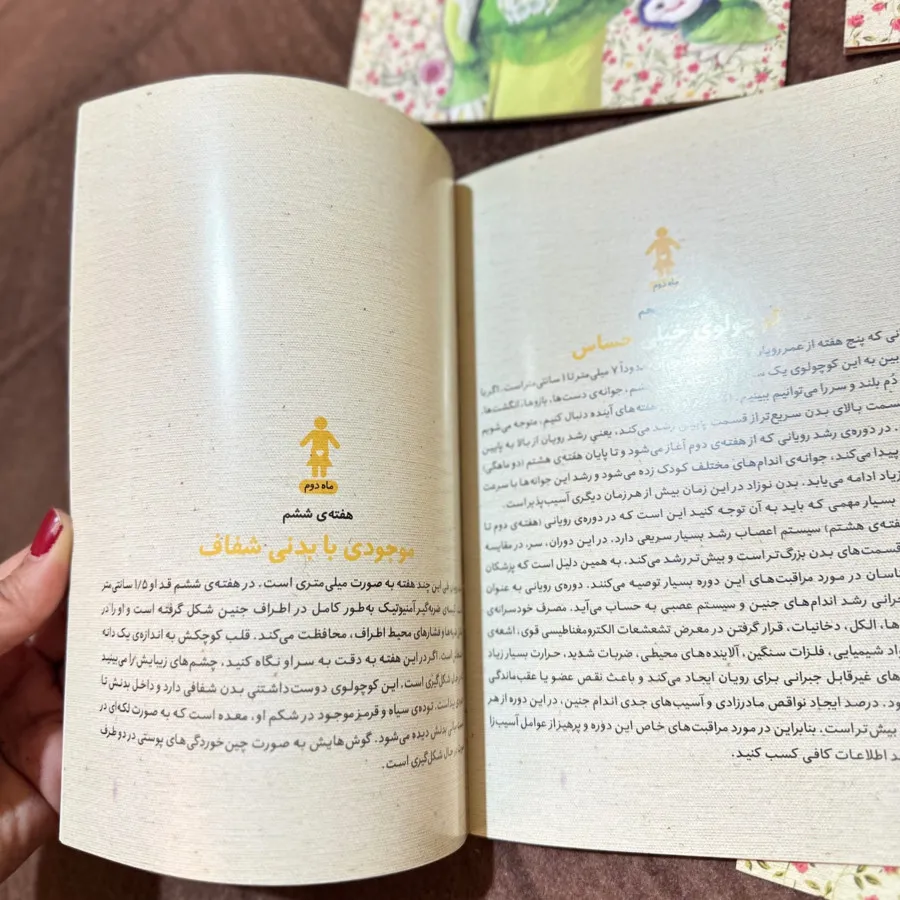 ماه دوم
چولوی خیلی حساس
نی که پنج هفته از عمر رویا
حدوداً ۷ میلی‌متر تا ۱ سانتی‌متر است. اگر با
بین به این کوچولوی یک
جوانه‌ی دست‌ها، بازوها، انگشت‌ها،
دُم بلند و سر را می‌توانیم ببینیم.
هفته‌های آینده دنبال کنیم، متوجه می‌شویم
سمت بالای بدن سریع‌تر از قسمت پایین رشد می‌کند، یعنی رشد رویان از بالا به پایین
در دوره‌ی رشد رویانی که از هفته‌ی دوم آغاز می‌شود و تا پایان هفته‌ی هشتم (دو ماهگی)
پیدا می‌کند، جوانه‌ی اندام‌های مختلف کودک زده می‌شود و رشد این جوانه‌ها با سرعت
زیاد ادامه می‌یابد. بدن نوزاد در این زمان بیش از هر زمان دیگری آسیب‌پذیر است.
بسیار مهمی که باید به آن توجه کنید این است که در دوره‌ی رویانی (هفته‌ی دوم تا
فته‌ی هشتم) سیستم اعصاب رشد بسیار سریعی دارد. در این دوران، سر، در مقایسه
قسمت‌های بدن بزرگ‌تر است و بیش‌تر رشد می‌کند. به همین دلیل است که پزشکان
ناسان در مورد مراقبت‌های این دوره بسیار توصیه می‌کنند. دوره‌ی رویانی به عنوان
حرانی رشد اندام‌های جنین و سیستم عصبی به حساب می‌آید. مصرف خودسرانه‌ی
ها، الکل، دخانیات، قرار گرفتن در معرض تشعشعات الکترومغناطیسی قوی، اشعه‌ی
واد شیمیایی، فلزات سنگین، آلاینده‌های محیطی، ضربات شدید، حرارت بسیار زیاد
های غیرقابل جبرانی برای رویان ایجاد می‌کند و باعث نقص عضو یا عقب‌ماندگی
ود. درصد ایجاد نواقص مادرزادی و آسیب‌های جدی اندام جنین، در این دوره از هر
بیش‌تر است. بنابراین در مورد مراقبت‌های خاص این دوره و پرهیز از عوامل آسیب‌زا
ند اطلاعات کافی کسب کنید.
ماه دوم
هفته‌ی ششم
موجودی با بدنی شفاف
این چند هفته به صورت میلی‌متری است. در هفته‌ی ششم قد او ۱/۵ سانتی‌متر
ضربه‌گیر آمنیوتیک به‌طور کامل در اطراف جنین شکل گرفته است و او را در
و فشارهای محیط اطراف، محافظت می‌کند. قلب کوچکش به اندازه‌ی یک دانه
است. اگر در این هفته به دقت به سر او نگاه کنید، چشم‌های زیبایش را می‌بینید
شکل‌گیری است. این کوچولوی دوست‌داشتنی بدن شفافی دارد و داخل بدنش تا
است. توده‌ی سیاه و قرمز موجود در شکم او، معده است که به صورت لکه‌ای در
بدنش دیده می‌شود. گوش‌هایش به صورت چین‌خوردگی‌های پوستی در دو طرف
حال شکل‌گیری است.